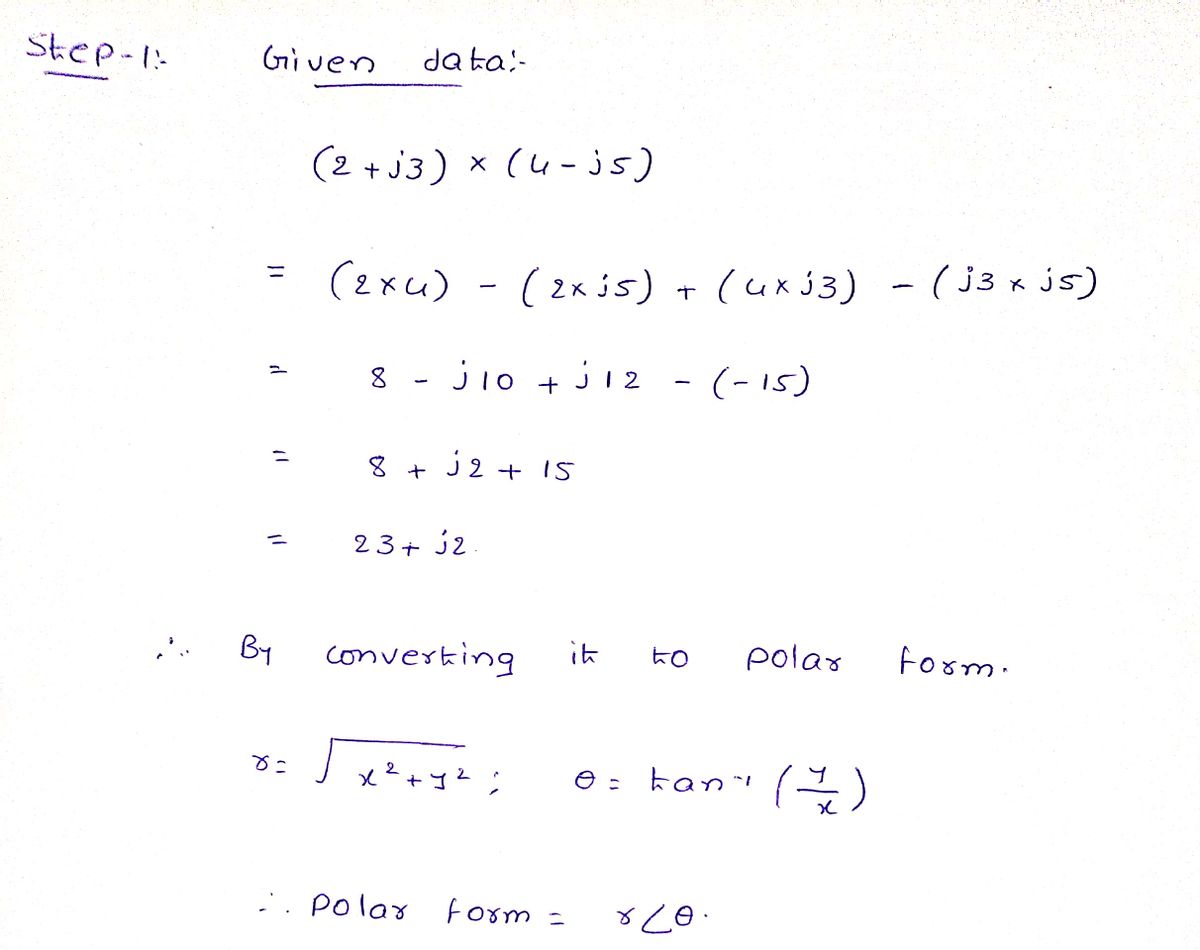 Step-1:- Given data:-
(2 + j3) × (4 - j5)
= (2×4) - (2× j5) + (4× j3) - (j3 × j5)
= 8 - j10 + j12 - (-15)
= 8 + j2 + 15
= 23 + j2.
∴ By converting it to polar form.
r = √(x² + y²) ; θ = tan⁻¹ (y/x)
∴ Polar form = r∠θ.